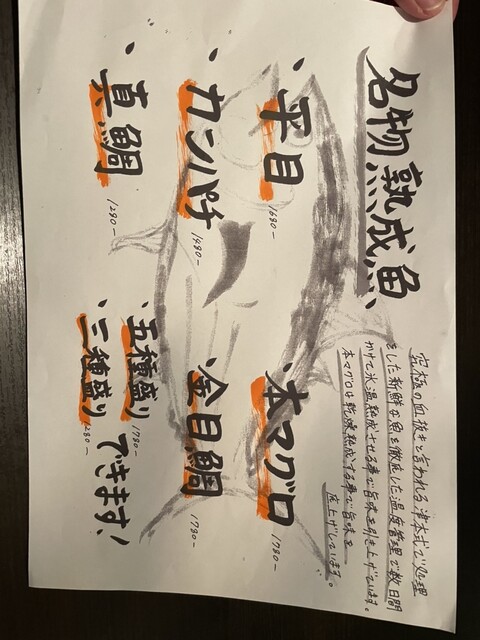 名物熟成魚
究極の血抜きと言われる津本式で処理
をした新鮮な魚を徹底した温度管理で数日間
かけて氷温熟成させる事で旨味を引き上げています。
本マグロは乾燥熟成する事で旨味を
底上げしています。
・平目 1680-
・本マグロ 1780-
・カンパチ 1480-
・金目鯛 1780-
・真鯛 1280-
・五種盛り 1780-
・三種盛り 1280-
できます、